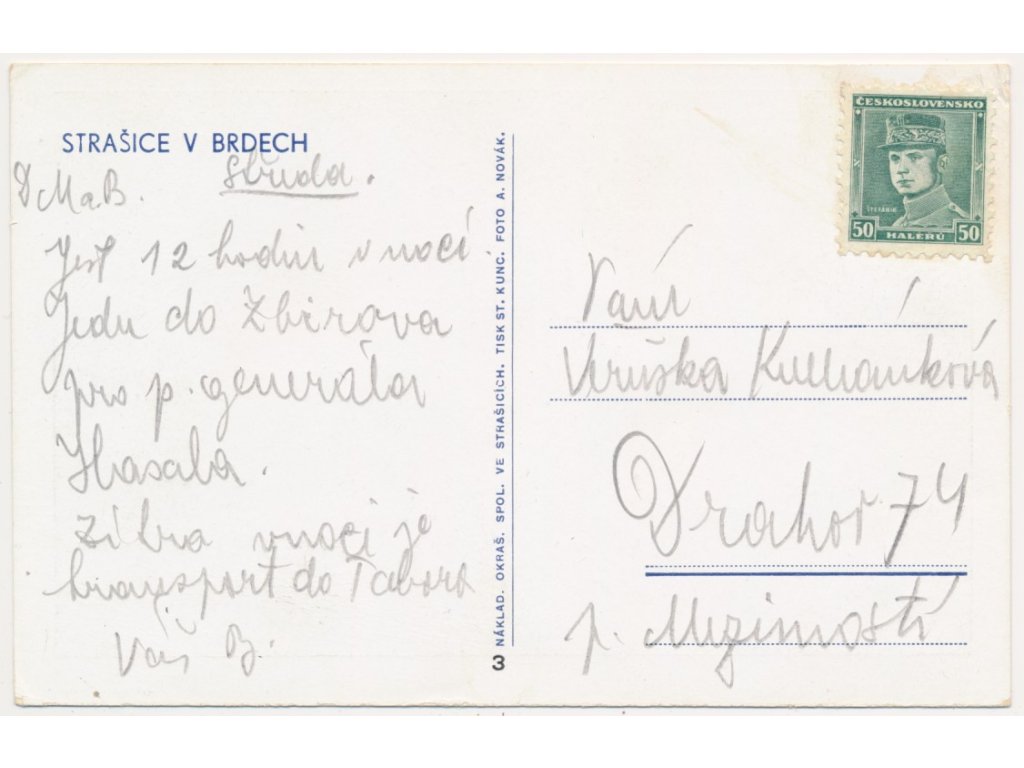 STRAŠICE V BRDECH
D M a B. Středa.
Jest 12 hodin v noci.
Jedu do Zbirova
pro p. generála
Hasala.
Zítra v noci je
transport do Tábora
Váš B.
NÁKLAD. OKRAŠ. SPOL. VE STRAŠICÍCH. TISK ST. KUNC. FOTO A. NOVÁK.
3
ČESKOSLOVENSKO
ŠTEFÁNIK
50 HALÉŘŮ 50
Veruška Kulhánková
74
p. Mezimostí